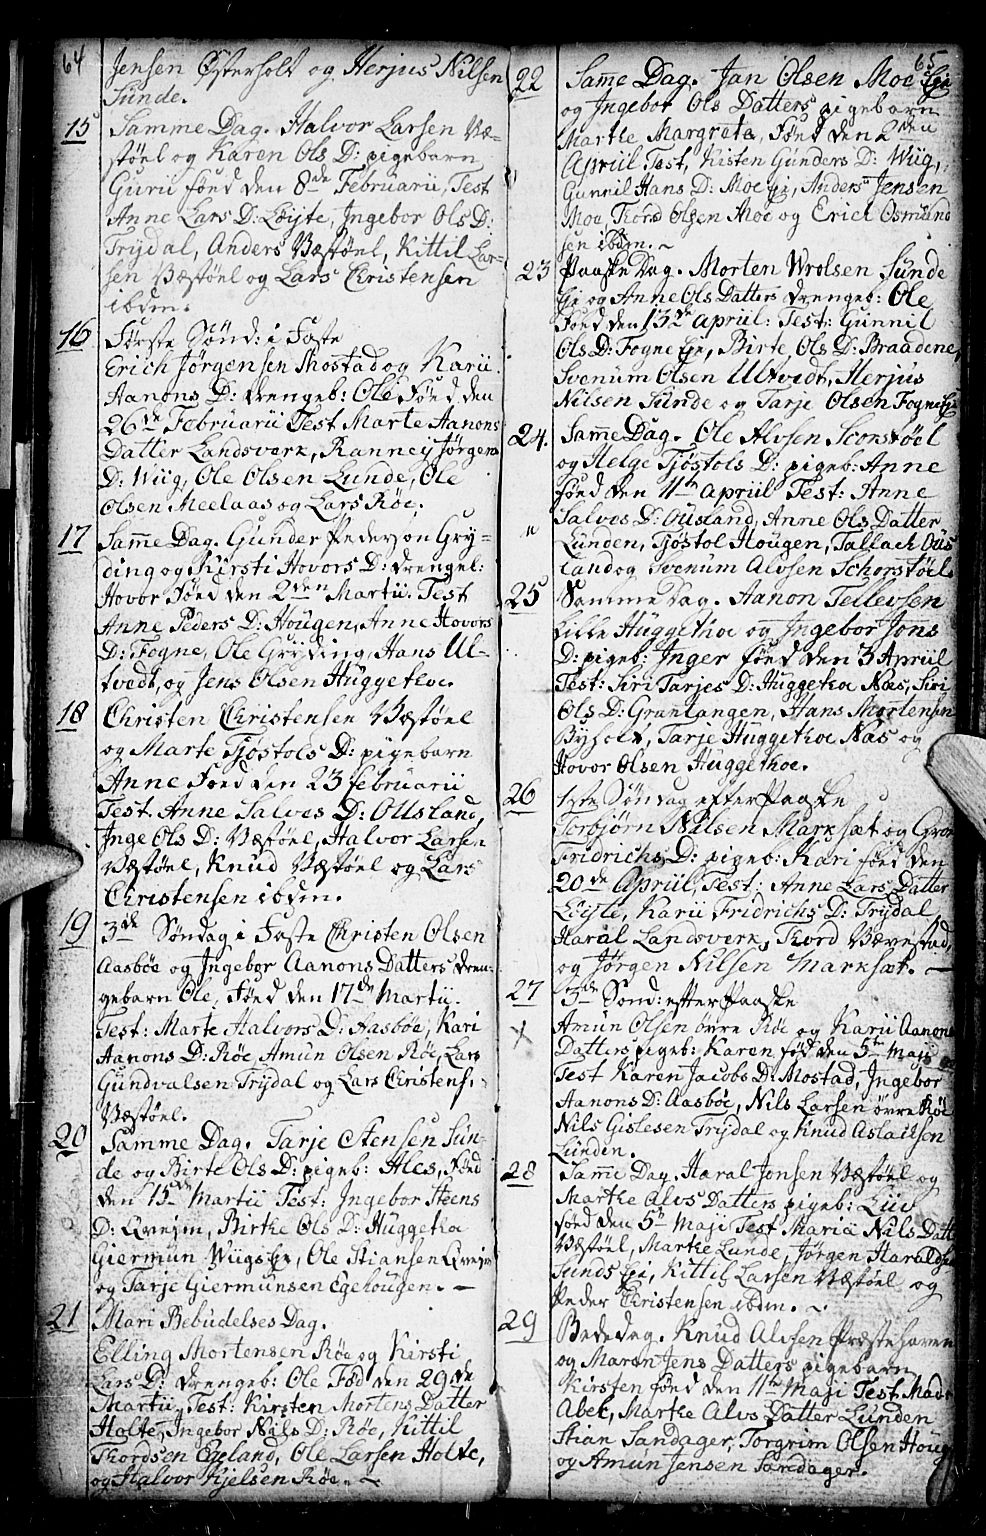 64
Jensen Østerholt og Herjus Nilsen
Sunde.
15 Samme Dag. Halvor Larsen Væ-
støel og Karen Ols D: pigebarn
Guru fønd den 8de Februarii, Test
Anne Lars D: Løyte, Ingebor Ols D:
Trydal, Anders Væstøel, Kittil Lar-
sen Væstøel og Lars Christensen
ibdm.
16 Første Sønd: i Faste
Erich Jørgensen Mostad og Karii
Aanons D: drengeb: Ole Fønd den
26de Februarii Test Marte Aanons
Datter Landsverk, Ranney Jørgens
D: Wiig, Ole Olsen Lunde, Ole
Olsen Meelaas og Lars Røe.
17 Samme Dag. Gunder Pederson Gry-
ding og Kirsti Hovors D: drengeb:
Hovor Fønd den 2den Martii. Test
Anne Peders D: Hougen, Anne Hovors
D: Fogne, Ole Gryding, Hans Ul-
tvedt, og Jens Olsen Huggethoe.
18 Christen Christensen Væstøel
og Marte Tjøstols D: pigebarn
Anne Fønd den 23 februarii
Test. Anne Salves D: Ousland,
Inge Ols D: Væstøel, Halvor Larsen
Væstøel, Knud Væstøel og Lars
Christensen ibdm.
19 3de Søndag i Faste Christen Olsen
Aasbøe og Ingebor Aanons Datters dren-
gebarn Ole, Fønd den 17de Martii.
Test: Marte Halvors D: Aasbøe, Kari
Aanons D: Røe, Amun Olsen Røe, Lars
Gundvalsen Trydal og Lars Christens:
Væstøel.
20 Samme Dag. Tarje Stensen Sun-
de og Birte Ols D: pigeb: Ales, Fønd
den 15de Martii Test: Ingebor Steens
D: Qvejm, Birthe Ols D: Huggethoe
Giermun Wiigs Eje, Ole Stiansen Qvejm
og Tarje Giermunsen Egehougen. —
21 Mari Bebudelses Dag.
Elling Mortensen Røe og Kirsti
Lars D: drengeb: Ole Fød den 29de
Martii, Test: Kirsten Mortens Datter
Holte, Ingebor Nils D: Røe, Kittil
Thordsen Egeland, Ole Larsen Holte,
og Halvor Kjelsen Røe. ~
65
22 Same Dag. Jan Olsen Moe Eje
og Ingebor Ols Datters pigebarn
Marthe Margreta, Fønd den 2den
Apriil Test, Kisten Gunders D: Wiig,
Gunnil Hans D: Moe Eje, Anders Jensen
Moe, Thord Olsen Moe og Erich Osmund
sen ibdm. ~
23 Paaske Dag. Morten Wrolsen Sunde
Eje og Anne Ols Datters drengeb: Ole
Fønd den 13de Apriil: Test: Gunnil
Ols D: Fogne Eje, Birte Ols D: Braadene,
Svenum Olsen Ultvedt, Herjus
Nilsen Sunde og Tarje Olsen Fogne Eje
24. Samme Dag. Ole Alvsen Sconstøel
og Helge Tjøstols D: pigeb: Anne
fønd den 11te Apriil Test: Anne
Salves D: Ousland, Anne Ols Datter
Lunden, Tjøstol Hougen, Tallach Ous
land og Svenum Alvsen Schorstøel.
25 Samme Dag. Aanon Tellevsen
Lille Huggethoe og Ingebor Jons
D: pigeb: Inger fønd den 3 Apriil
Test: Siri Tarjes D: Huggethoe Næs, Siri
Ols D: Granlangen, Hans Mortensen
Byholt, Tarje Huggethoe Næs og
Hovor Olsen Huggethoe.
26 1ste Søndag efter Paaske
Torbjørn Nilsen Marksæt og Groe
Fridrichs D: pigeb: Kari fønd den
20de Apriil, Test: Anne Lars Datter
Løyte, Karii Fridrichs D: Trydal,
Haral Landsverk, Thord Vævestad,
og Jørgen Nilsen Marksæt. —
27 3de Sønd: efter Paaske
Amun Olsen øvre Røe og Karii Aanons
Datters pigeb: Karen fød den 5te Maji
Test Karen Jacobs D: Mostad, Ingebor
Aanons D: Aasbøe, Nils Larsen øvre Røe
Nils Gislesen Trydal og Knud Aslachsen
Lunden.
28 Samme Dag. Haral Jonsen Væstøel og
Marthe Alvs Datters pigeb: Liv
fønd den 5te Maji Test Maria Nils Datt:
Væstøel, Marthe Lunde, Jørgen Haraldsen
Sunds Eje, Kittil Larsen Væstøel og
Peder Christensen ibdm. ~
29 Bededag. Knud Alvsen Præstehaven
og Maren Jens Datters pigebarn
Kirsten fønd den 11te Maji Test. Madm
Abel, Marthe Alvs Datter Lunden
Stian Sandager, Torgrim Olsen Houg
og Amun Jensen Sandager.